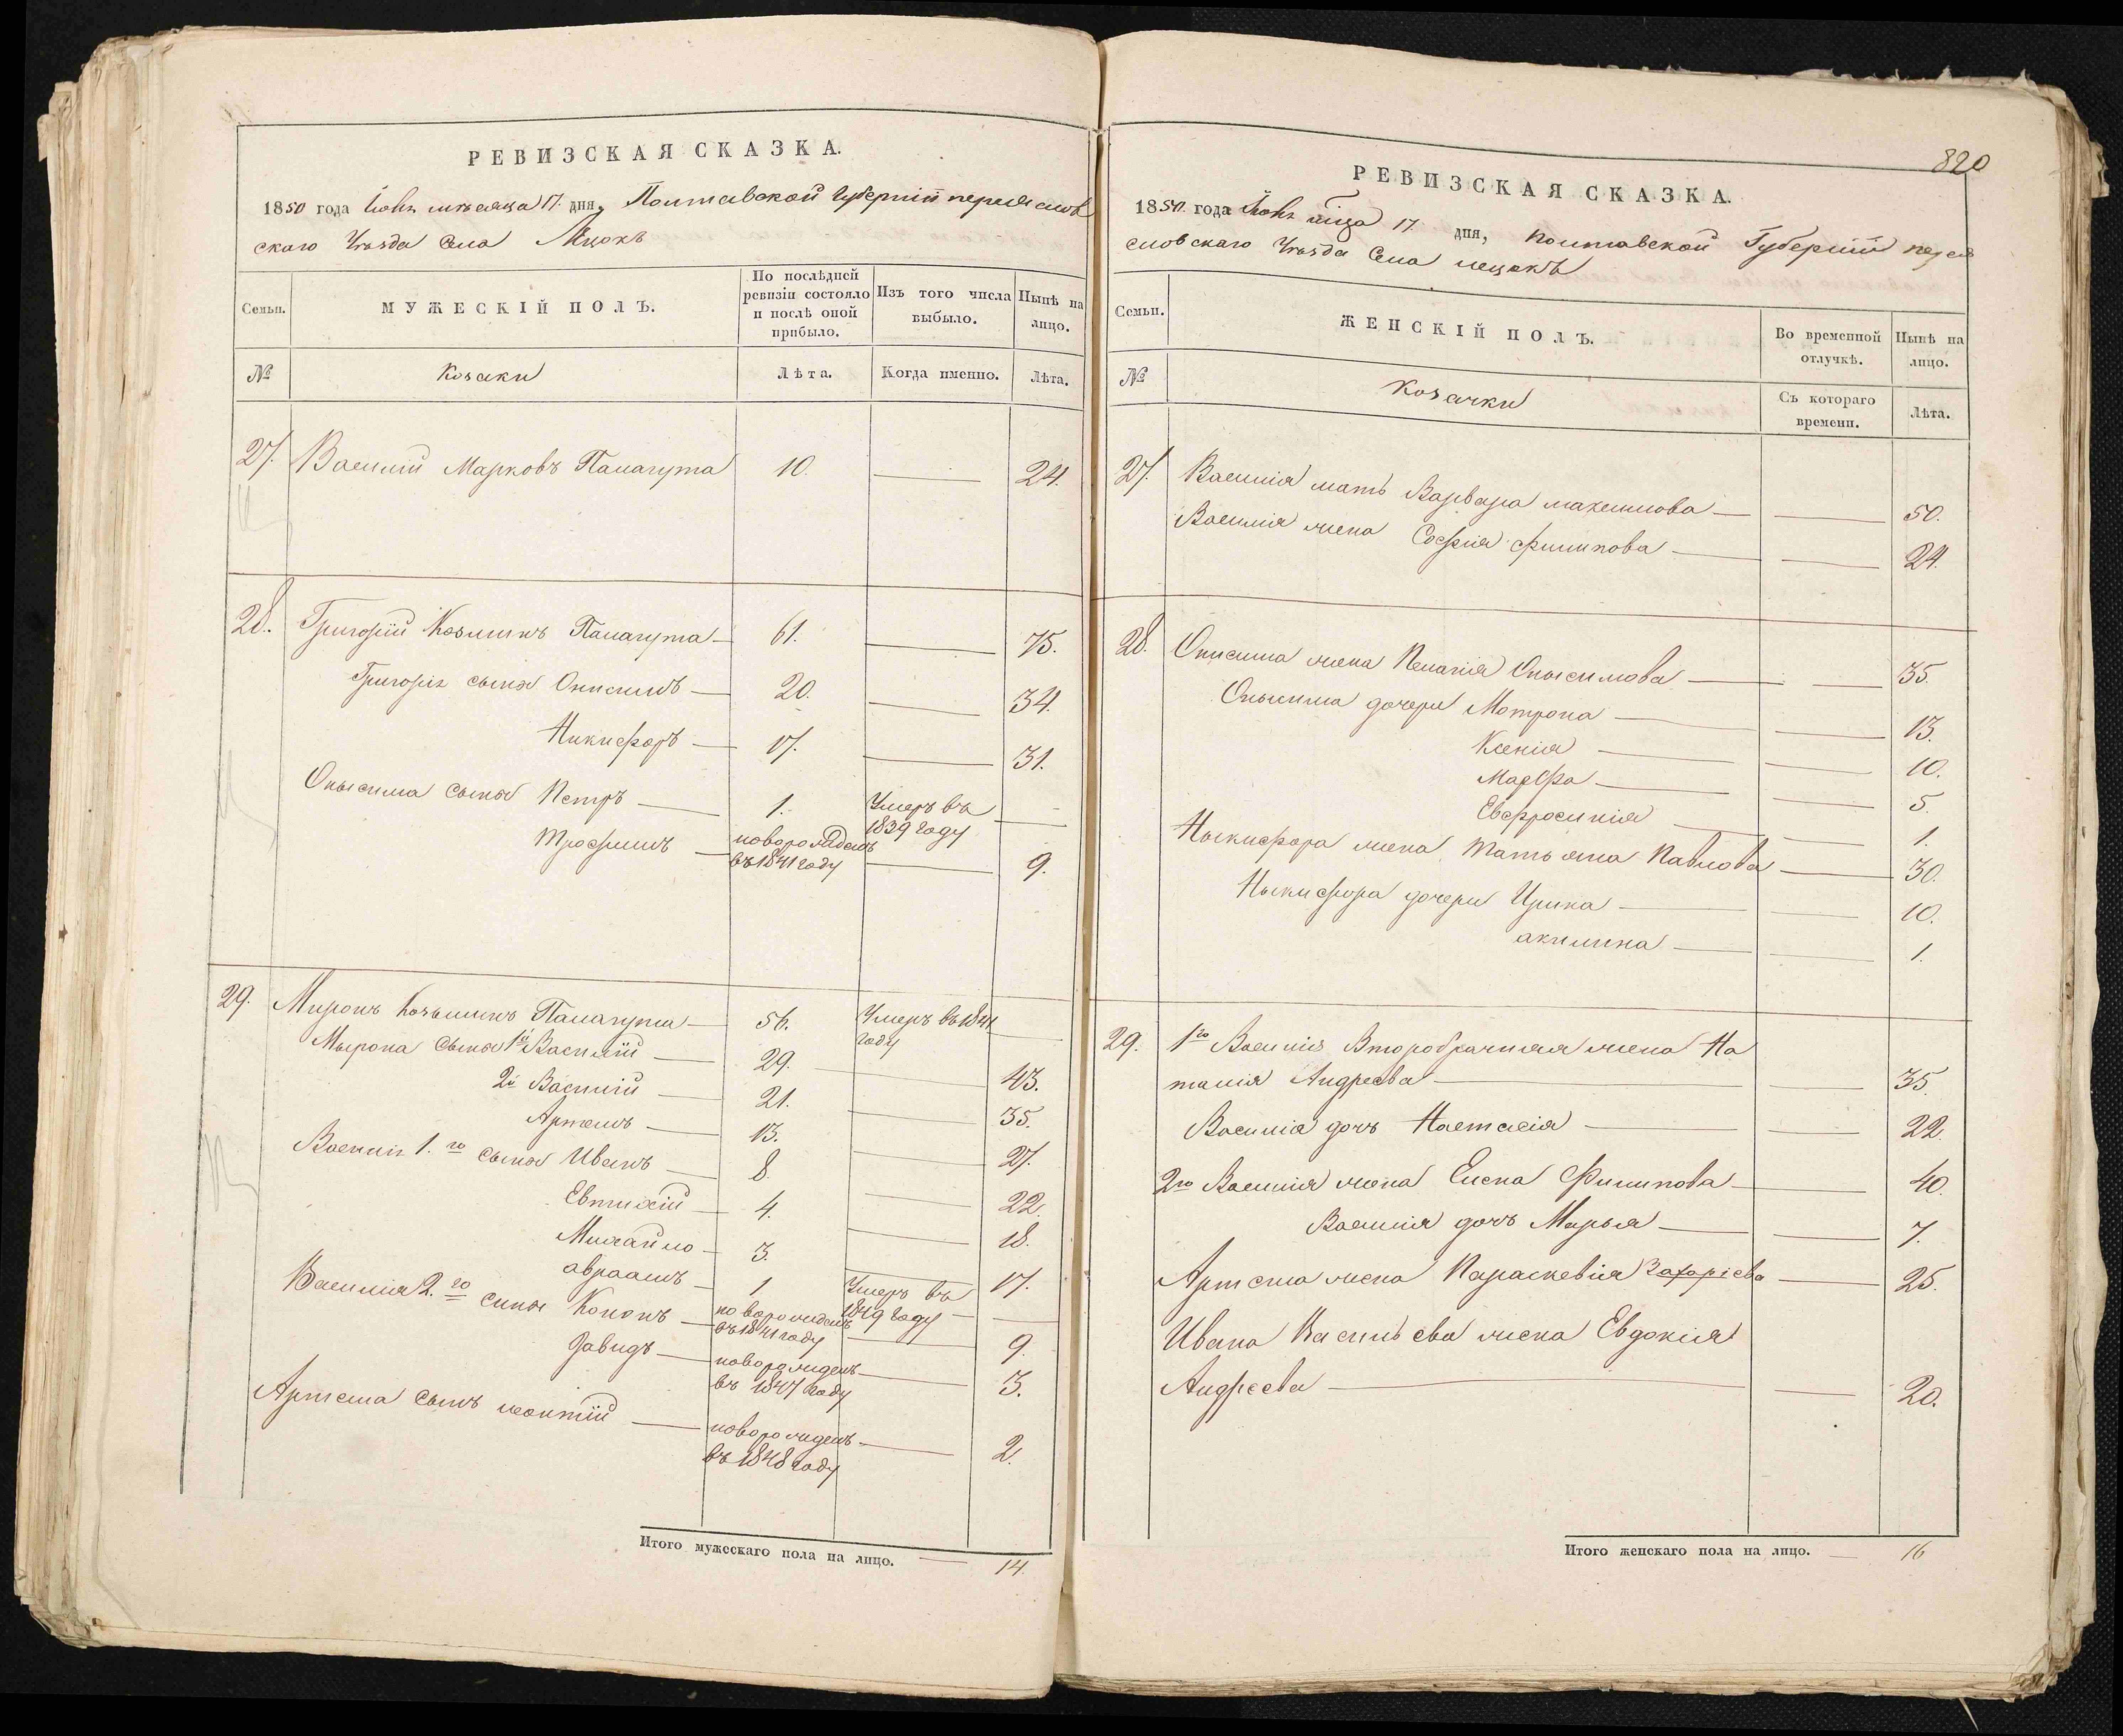 РЕВИЗСКАЯ СКАЗКА.
1850 года Іюнь мѣсяца 17. дня, Полтавской Губерніи переяслов
скаго Уѣзда Села
Семьи.
МУЖЕСКІЙ ПОЛЪ.
По послѣдней ревизіи состояло и послѣ оной прибыло.
Изъ того числа выбыло.
Нынѣ на лицо.
№
Козаки
Лѣта.
Когда именно.
Лѣта.
27. Василій Марковъ Палагута 10. — 24.
28. Григорій Козминъ Палагута — 61. — 75.
Григорія сыновя Онисимъ — 20. — 34.
Никифоръ — 17. — 31.
Онысима сыновя Петръ — 1. Умеръ въ 1839 году —
Трофимъ — новорожденъ въ 1841 году — 9.
29. Миронъ Козьминъ Палагута — 56. Умеръ въ 1841 году —
Мырона Сыновя 1й Василій — 29. — 43.
2й Василій — 21. — 35.
Артемъ — 13. — 27.
Василія 1.го сыновя Иванъ — 8 — 22.
Евтихій — 4. — 18.
Михайло — 3. — 17.
авраамъ — 1 Умеръ въ 1849 году —
Василия 2.го сыновя Кононъ — новорожденъ въ 1841 году — 9.
Давидъ — новорожденъ въ 1847 году — 3.
Артема Сынъ леонтій — новорожденъ въ 1848 году — 2.
Итого мужескаго пола на лицо. — 14.
820
РЕВИЗСКАЯ СКАЗКА.
1850 года Іюнь мца 17 дня, полтавской Губерніи перея
словскаго Уѣзда Села
Семьи.
ЖЕНСКІЙ ПОЛЪ.
Во временной отлучкѣ.
Нынѣ на лицо.
№
Козачки
Съ котораго времени.
Лѣта.
27. Василія мать Варвара максимова — — 50.
Василія жена Софія филипова — — 24.
28. Онисима жена Пелагія Онысимова — — 35.
Онысима дочери Мотрона — — 13.
Ксенія — — 10.
Марфа — — 5.
Евфросинія — — 1.
Ныкифора жена татьяна Павлова — 30.
Ныкифора дочери Ирина — — 10.
акилина — — 1.
29. 1го Василія Второбрачная жена На
талія Андреева — — 35.
Василія дочь Настасія — — 22.
2го Василія жена Елена Филипова — — 40.
Василія дочь Марья — — 7.
Артема жена Параскевія Захаріева — 25.
Ивана Васильева жена Евдокія
Андреева — — 20.
Итого женскаго пола на лицо. — 16